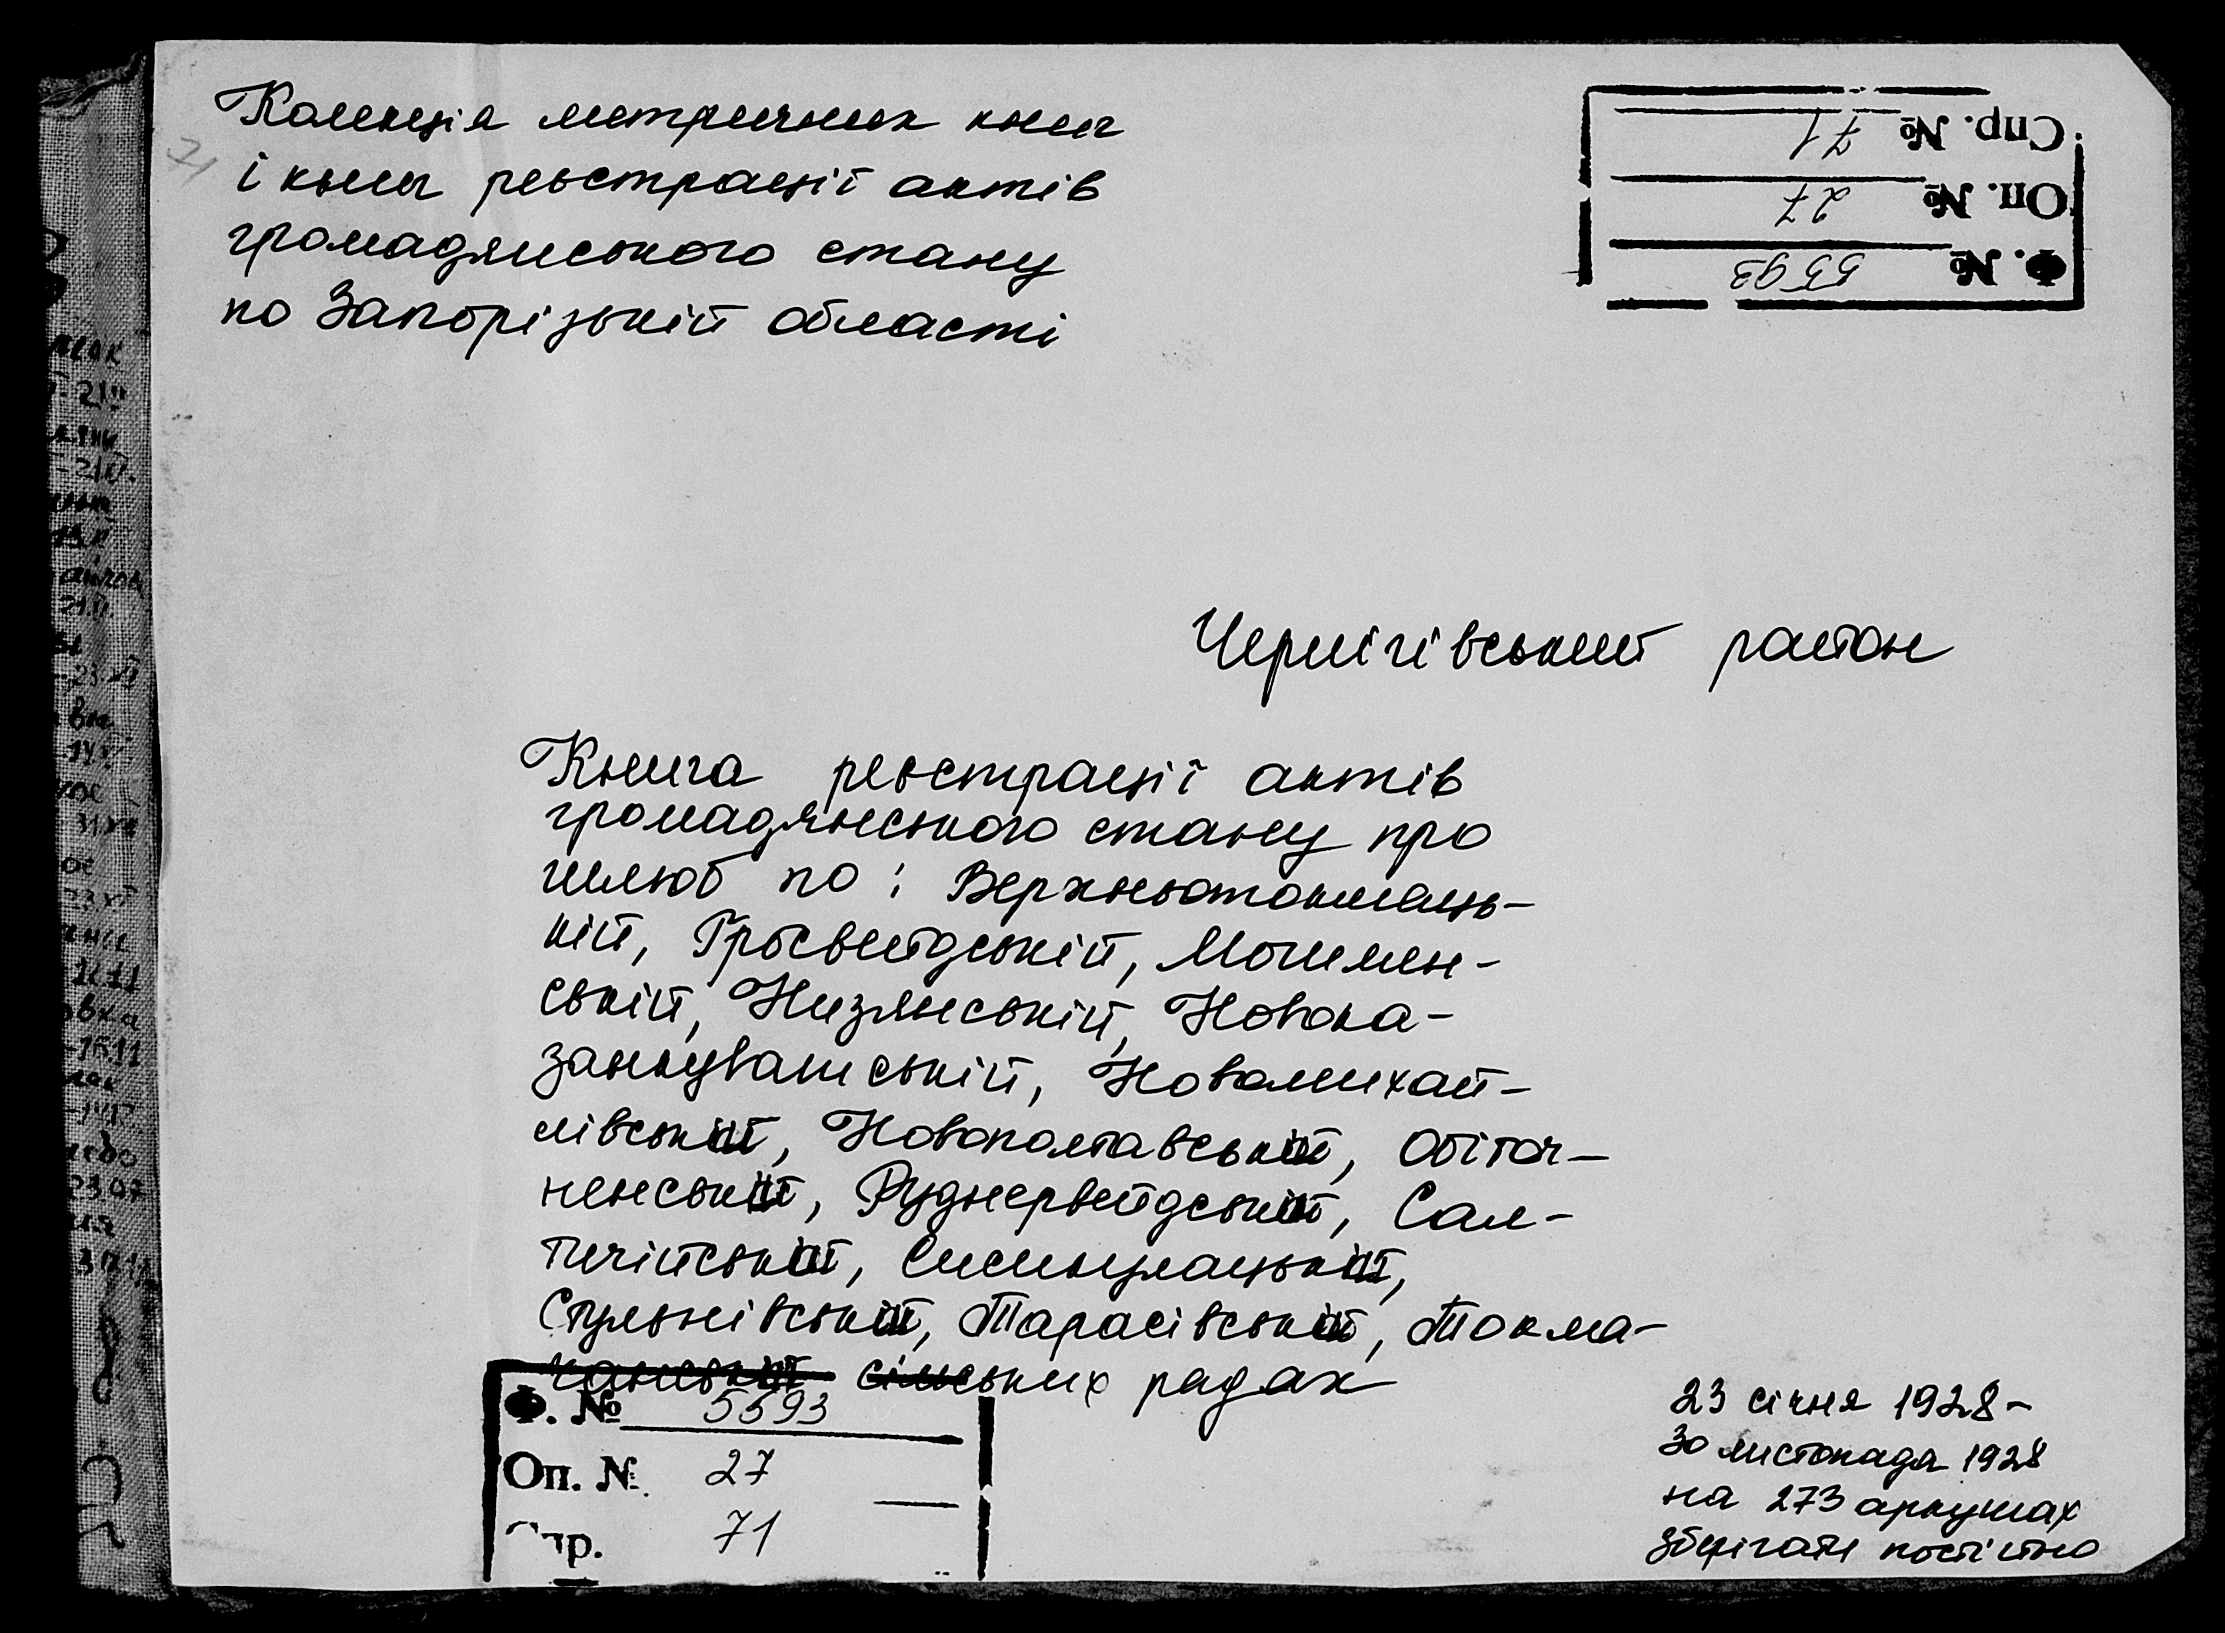 Колекція метричних книг
і книг реєстрації актів
громадянського стану
по Запорізькій області
71
Спр. № 71
Оп. № 27
Ф. № 5593
Чернігівський район
Книга реєстрації актів
громадянського стану про
шлюб по: Верхньотокмаць-
кій, Гросвейдській, Могилян-
ській, Низянській, Новока-
занкуватській, Новомихай-
лівській, Новополтавській, Обіточ-
ненській, Руднервейдській, Сал-
тичійській, Сисикулацькій,
Стульнівській, Тарасівській, Токма-
чанській сільських радах
Ф. № 5593
Оп. № 27
71
23 січня 1928-
30 листопада 1928
на 273 аркушах
зберігати постійно